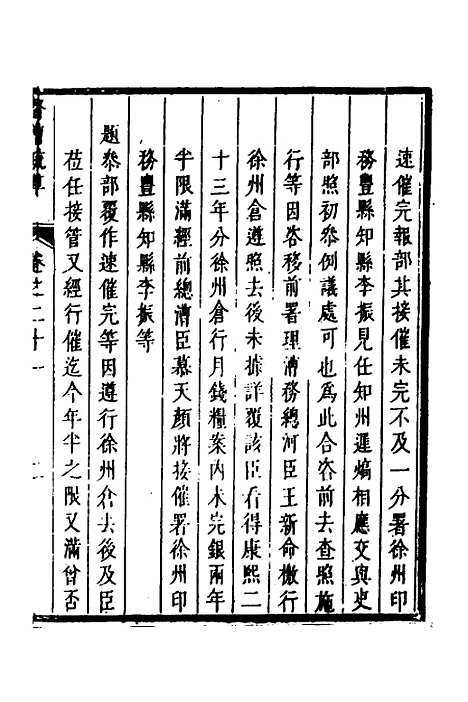 速催完報部其接催未完不及一分署徐州印
務豐縣知縣李振見任知州遲熵相應交與吏
部照初叅例議處可也爲此合咨前去查照施
行等因咨移前署理漕務總河臣王新命檄行
徐州倉遵照去後未據詳覆該臣看得康熙二
十三年分徐州倉行月錢糧案內未完銀兩年
半限滿經前總漕臣慕天顏將接催署徐州印
務豐縣知縣李振等
題叅部覆作速催完等因遵行徐州倉去後及臣
莅任接管又經行催迄今年半之限又滿曾否
卷之二十一
二